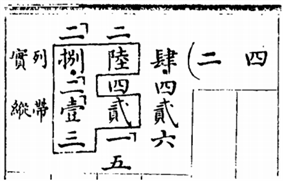 四
二
肆四貳六
二陸四貳一五
二捌二壹三
列實
帶縱